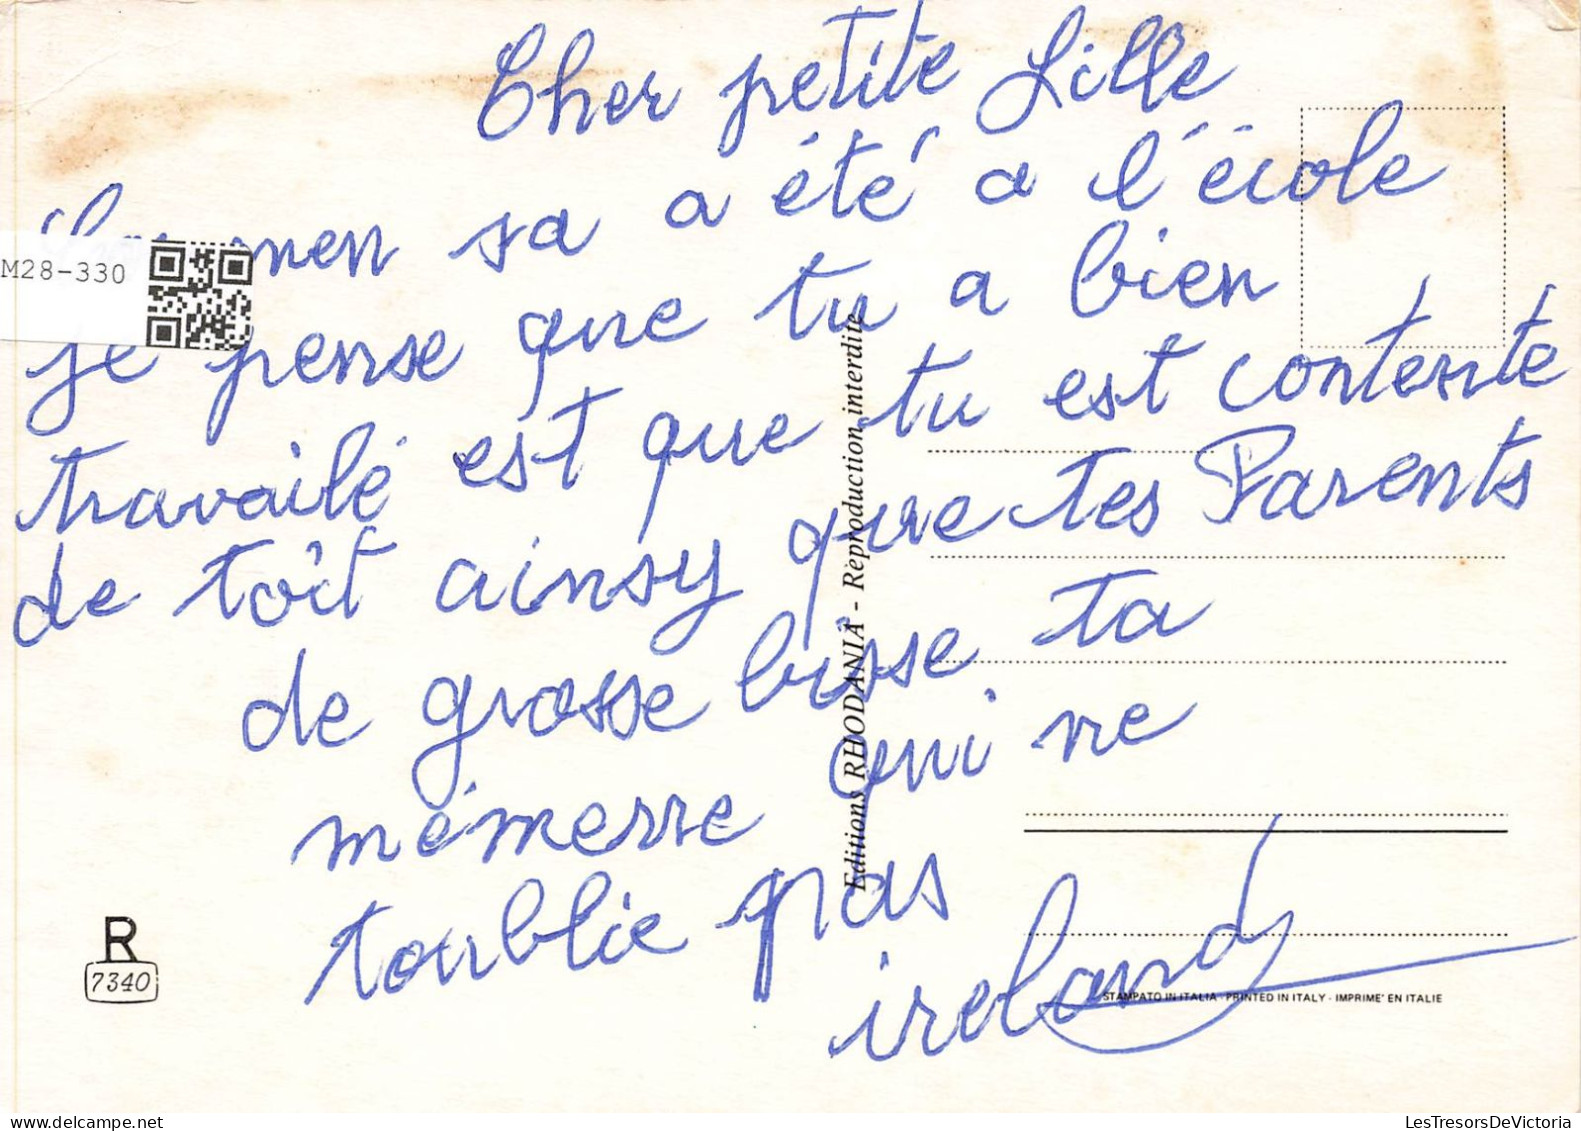 Cher petite Lille
sa a été a l'école
je pense que tu a bien
travailé est que tu est contente
de toit ainsy que tes Parents
de grosse bisse ta
mémerre qui ne
toublie pas
ireland
M28-330
Editions RHODANIA - Reproduction interdite
R
7340
STAMPATO IN ITALIA - PRINTED IN ITALY - IMPRIME' EN ITALIE
LesTresorsDeVictoria
delcampe.net